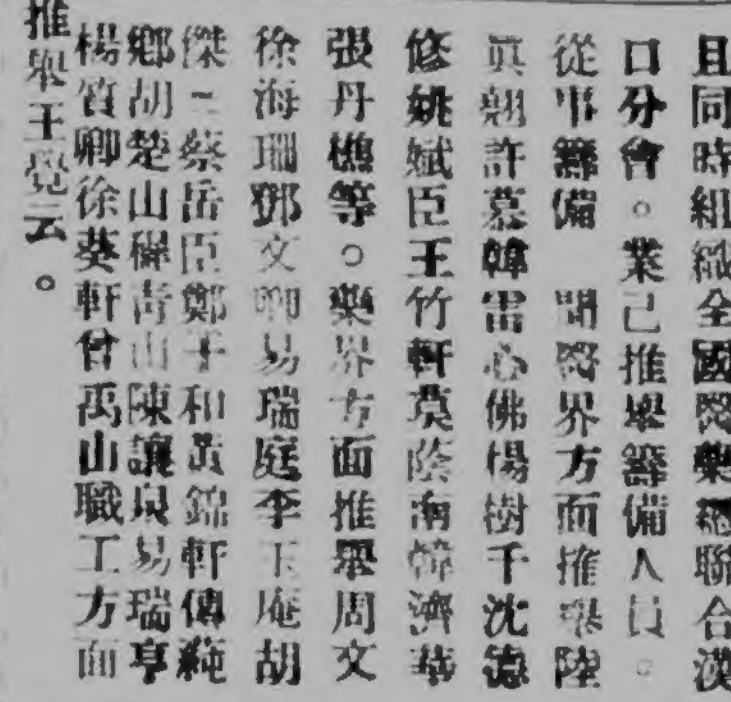 且同時組織全國醫藥總聯合漢
口分會。業已推舉籌備人員。
從事籌備　聞醫界方面推舉陸
眞翹許慕韓雷心佛楊樹千沈德
修姚斌臣王竹軒萸蔭南韓濟華
張丹樵等。藥界方面推舉周文
徐海珊鄧文卿易瑞庭李玉庵胡
傑 蔡岳臣鄭子和黃錦軒傅純
鄉胡楚山 青山陳讓泉易瑞亨
楊質卿徐葵軒曾禹山職工方面
推舉王覺云。